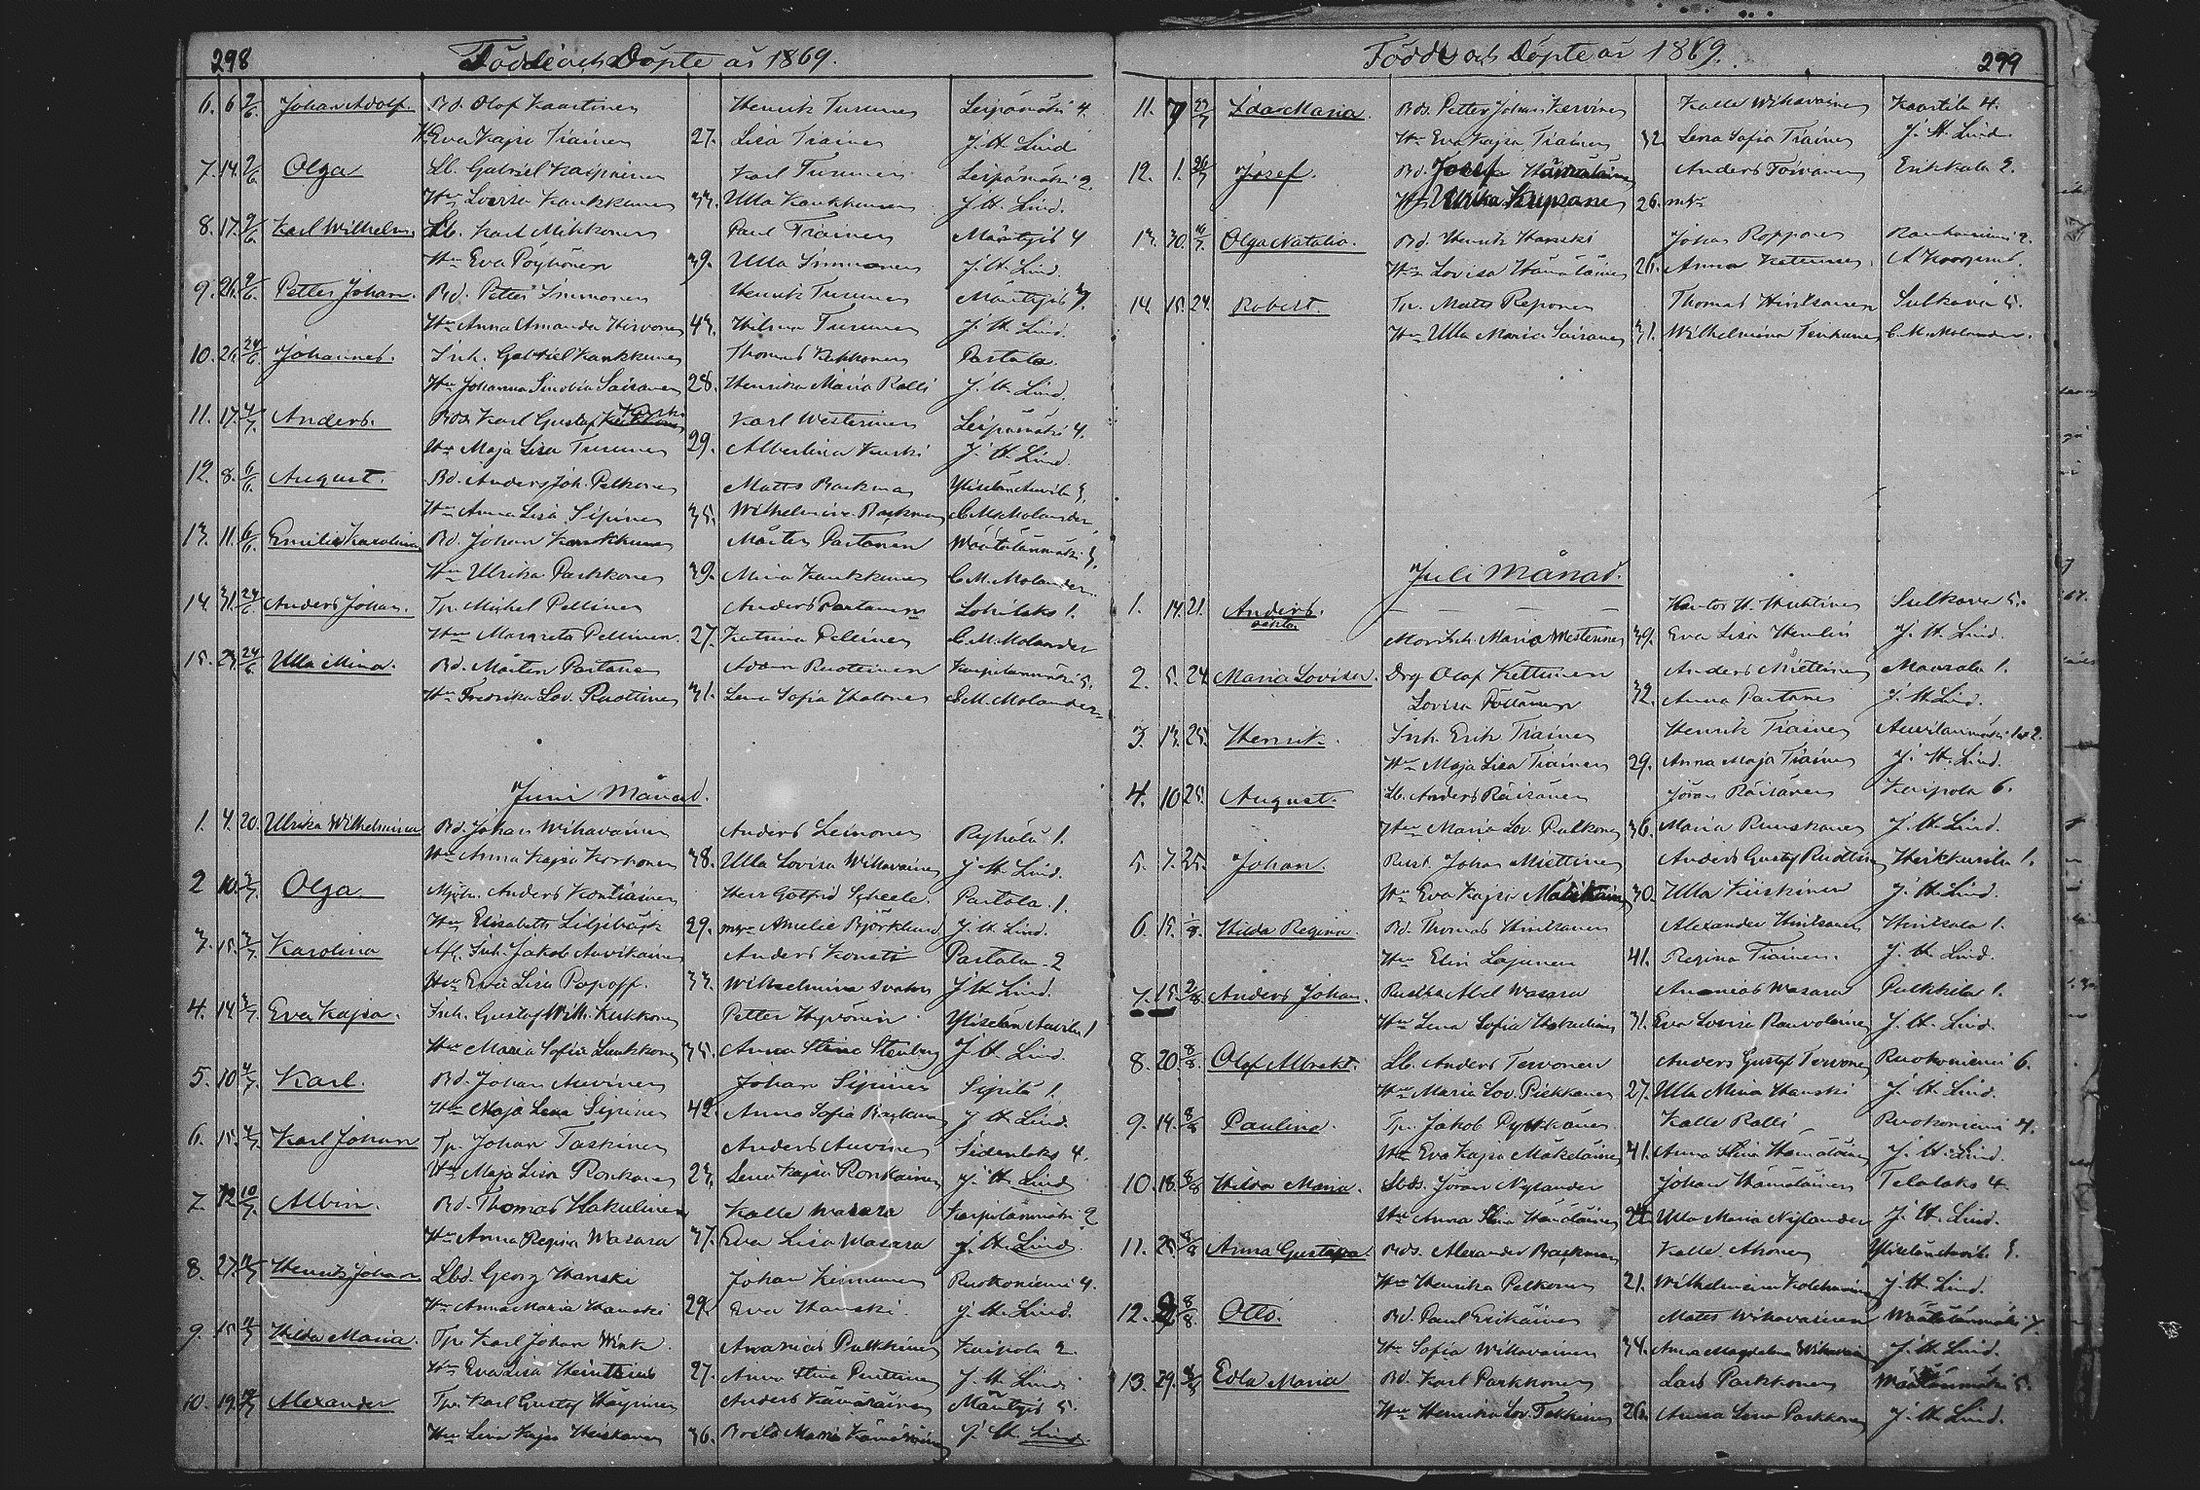 298 Födde och Döpte år 1869.
6. 6 2/6. Johan Adolf. Bd. Olof Kaartinen Henrik Turunen Leipämäki 4.
Hu Eva Kajsa Tiainen 27. Lisa Tiainen J. H. Lind
7. 14. 2/6 Olga Lb. Gabriel Kaipainen Karl Turunen Leipämäki 2.
Hu Lovisa Kaukkunen 33. Ulla Kaukkunen J. H. Lind.
8. 17. 2/6. Karl Wilhelm. Lb. Karl Mikkonen Paul Tiainen Mäntyjis 4
Hu Eva Pöyhönen 39. Ulla Immonen J. H. Lind.
9. 26. 2/6. Petter Johan. Bd. Petter Immonen Henrik Turunen Mäntyjis 3.
Hu Anna Amanda Hirvonen 43. Hilma Turunen J. H. Lind.
10. 21. 24/6 Johannes. Inh. Gabriel Kaukkunen Thomas Kukkonen Partala.
Hu Johanna Sinobia Saisanen 28. Henrika Maria Ralli J. H. Lind.
11. 17. Anders. Bds Karl Gustaf Karl Westerinen Leipämäki 4.
Hu Maja Lisa Turunen 29. Albertina Kurki J. H. Lind.
12. 8. 6/6. August. Bd. Anders Joh. Pelkonen Matts Backman
Hu Anna Lisa Sipinen 35. Wilhelmina Backman C. M. Molander.
13. 11. 6/6. Emilia Karolina Bd. Johan Kaukkunen Mårten Partanen Wäätälänmäki 3.
Hu Ulrika Parkkonen 39. Mina Kaukkunen C. M. Molander.
14. 31. 24/6. Anders Johan. Tp. Mikel Pellinen Anders Partanen Lohilaks 1.
Hu Margreta Pellinen. 27. Katrina Pellinen C. M. Molander
15. 23. 24/6 Ulla Mina. Bd. Mårten Partanen Adam Ruottinen Karpilanmäki 5.
Hu Fredrika Lov. Ruottinen 31. Lena Sofia Halonen C. M. Molander
Juni Månad.
1. 4. 20. Ulrika Wilhelmina Bd. Johan Wihavainen Anders Leinonen Ryhälä 1.
Hu Anna Kajsa Korhonen 38. Ulla Lovisa Wihavainen J. H. Lind.
2 10. Olga Anders Kontiainen Herr Gotfrid Scheele. Partala 1.
Hu Elisabeth Liljebäck 29. Amelie Björklund J. H. Lind.
3. 15. Karolina Afl. Inh. Jakob Auvikainen Anders Konsti Partala 2
Hu Eva Lisa Popoff. 33. Wilhelmina J. H. Lind.
4. 14. Eva Kajsa. Inh. Gustaf Wilh. Kukkonen Petter Hyvönen 1
Hu Maria Sofia Luukkonen 35. Anna Stina Stenberg J. H. Lind.
5. 10 Karl. Bd. Johan Auvinen Johan Sipinen Sipilä 1.
Hu Maja Lena Sipinen 42. Anna Sofia Backman J. H. Lind.
6. 15. Karl Johan Tp. Johan Taskinen Anders Auvinen Sidenlaks 4.
Hu Maja Lisa Ronkanen 23. Lena Kajsa Ronkainen J. H. Lind
7. 12 10/7. Albin. Bd. Thomas Hakulinen Kalle Wasara Karpilanmäki 2
Hu Anna Regina Wasara 37. Eva Lisa Wasara J. H. Lind.
8. 27. Henrik Johan Lbd. Georg Hanski Johan Kinnunen Ruokoniemi 4.
Hu Anna Maria Hanski 29. Eva Hanski. J. H. Lind.
9. 15 Hilda Maria. Tp. Karl Johan Wink. Ananias Pulkkinen Kaipola 2.
Hu Eva Lisa 27. Anna Stina J. H. Lind
10. 19. Alexander Tp. Karl Gustaf Häyrinen Anders Kämäräinen Mäntyjis 5.
Hu Lena Kajsa Heiskanen 36. Maria Kämäräinen J. H. Lind.
Födde och Döpte år 1869. 299
11. Ida Maria. Bds. Petter Johan Kervinen Kalle Wihavainen Kaartila 4.
Hu Eva Kajsa Tiainen 32 Lena Sofia Tiainen J. H. Lind.
12. 1. Josef. Bd. Josef Hämäläinen Anders Toivanen Erikkala 2.
Hu Ulrika 26.
13. 30. Olga Natalia. Bd. Henrik Hanski Johan Ropponen Rauhaniemi 2.
Hu Lovisa Hämäläinen 26. Anna Ketunen.
14. 15. 24. Robert. Tp. Matts Reponen Thomas Hintsanen Sulkava 5.
Hu Ulla Maria Saisanen 31. Wilhelmina Tenhunen C. M. Molander.
Juli Månad.
1. 14. 21. Anders. Kantor H. Huhtinen Sulkava 5.
oäkta Maria Westerinen 39. Eva Lisa Henlin J. H. Lind.
2. 5. 24. Maria Lovisa. Drg Olof Kettunen Anders Miettinen Maurala 1.
Lovisa Pöllänen 32. Anna Partanen J. H. Lind.
3. 13. 25. Henrik. Inh. Erik Tiainen Henrik Tiainen Auvilanmäki 1 o 2.
Hu Maja Lisa Tiainen 29. Anna Maja Tiainen J. H. Lind.
4. 10 25. August. Lb. Anders Räisänen Jöran Räisänen Kaipola 6.
Hu Maria Lov. Pulkonen 36. Maria Ruuskanen J. H. Lind.
5. 7. 25. Johan. Rust. Johan Miettinen Anders Gustaf Ruottinen Heikkurila 1.
Hu Eva Kajsa 30. Ulla Kiiskinen J. H. Lind.
6. 15. 1/8. Hilda Regina. Bd. Thomas Hintsanen Alexander Hintsanen Hintsala 1.
Hu Elin Lajunen 41. Regina Tiainen. J. H. Lind.
7. 15. 2/8. Anders Johan. Abel Wasara Ananias Wasara Pulkkila 1.
Hu Lena Sofia Hakulinen 31. Eva Lovisa Rauvolainen J. H. Lind.
8. 20. 8/8. Olof Albrekt. Lb. Anders Tervonen Anders Gustaf Tervonen Ruokoniemi 6.
Hu Maria Lov. Pirkkanen 27. Ulla Mina Hanski J. H. Lind.
9. 14. 8/8 Pauline. Tp. Jakob Pykkänen Kalle Ralli Ruokoniemi 4.
Hu Eva Kajsa Mäkeläinen 41. Anna Stina Hämäläinen J. H. Lind.
10. 18. 8/8 Hilda Maria. Jöran Nylander Johan Hämäläinen Telalaks 4.
Hu Anna Stina Hämäläinen Ulla Maria Nylander J. H. Lind.
11. 25 8/8 Anna Gustava. Bds. Alexander Backman Kalle Ahonen
Hu Henrika Pelkonen 21. Wilhelmina Kolehmainen J. H. Lind.
12. 8/8 Otto. Bd. Paul Erikäinen Matts Wihavainen Wäätälänmäki 7.
Hu Sofia Wihavainen 34. Anna Magdalena Wihavainen J. H. Lind.
13. 29. Edla Maria Bd. Karl Parkkonen Lars Parkkonen Wäätälänmäki 5.
Hu Henrika Lov. Tikkinen 26. Anna Lena Parkkonen J. H. Lind.